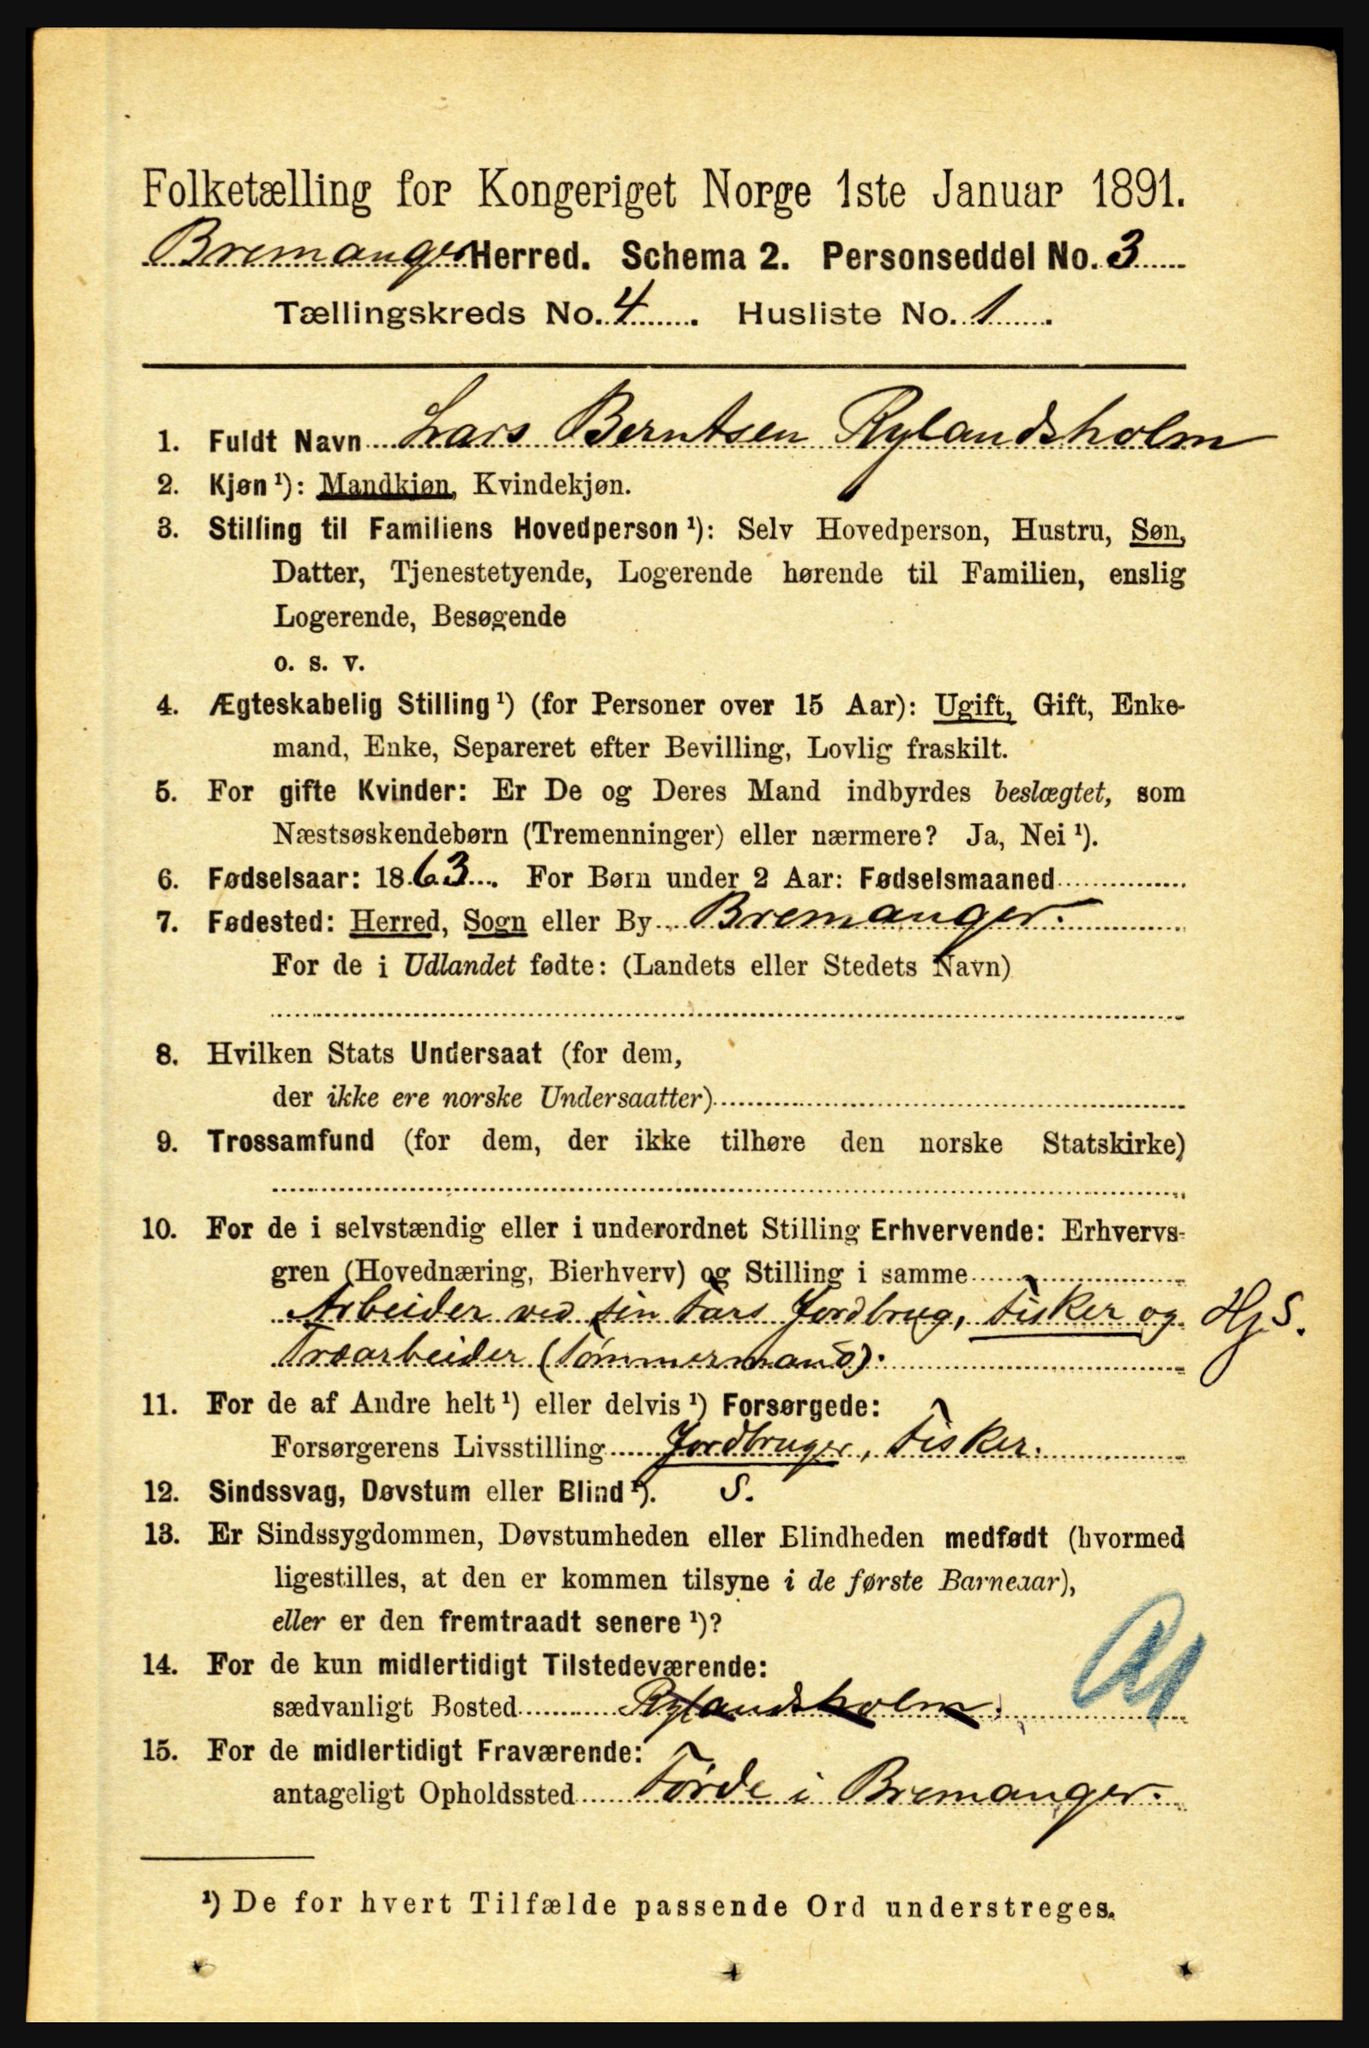 Folketælling for Kongeriget Norge 1ste Januar 1891.
Bremanger Herred. Schema 2. Personseddel No. 3
Tællingskreds No. 4. Husliste No. 1.
1. Fuldt Navn Lars Berntsen Rylandsholm
2. Kjøn ¹): Mandkjøn, Kvindekjøn.
3. Stilling til Familiens Hovedperson ¹): Selv Hovedperson, Hustru, Søn,
Datter, Tjenestetyende, Logerende hørende til Familien, enslig
Logerende, Besøgende
o. s. v.
4. Ægteskabelig Stilling ¹) (for Personer over 15 Aar): Ugift, Gift, Enke-
mand, Enke, Separeret efter Bevilling, Lovlig fraskilt.
5. For gifte Kvinder: Er De og Deres Mand indbyrdes beslægtet, som
Næstsøskendebørn (Tremenninger) eller nærmere? Ja, Nei ¹).
6. Fødselsaar: 1863. For Børn under 2 Aar: Fødselsmaaned
7. Fødested: Herred, Sogn eller By Bremanger.
For de i Udlandet fødte: (Landets eller Stedets Navn)
8. Hvilken Stats Undersaat (for dem,
der ikke ere norske Undersaatter)
9. Trossamfund (for dem, der ikke tilhøre den norske Statskirke)
10. For de i selvstændig eller i underordnet Stilling Erhvervende: Erhvervs-
gren (Hovednæring, Bierhverv) og Stilling i samme
Arbeider ved sin Fars Jordbrug, Fisker og HjS.
Træarbeider (Tømmermand).
11. For de af Andre helt ¹) eller delvis ¹) Forsørgede:
Forsørgerens Livsstilling Jordbruger, Fisker.
12. Sindssvag, Døvstum eller Blind ¹). S.
13. Er Sindssygdommen, Døvstumheden eller Blindheden medfødt (hvormed
ligestilles, at den er kommen tilsyne i de første Barneaar),
eller er den fremtraadt senere ¹)?
14. For de kun midlertidigt Tilstedeværende:
sædvanligt Bosted Rylandsholm.
15. For de midlertidigt Fraværende:
antageligt Opholdssted Førde i Bremanger.
¹) De for hvert Tilfælde passende Ord understreges.